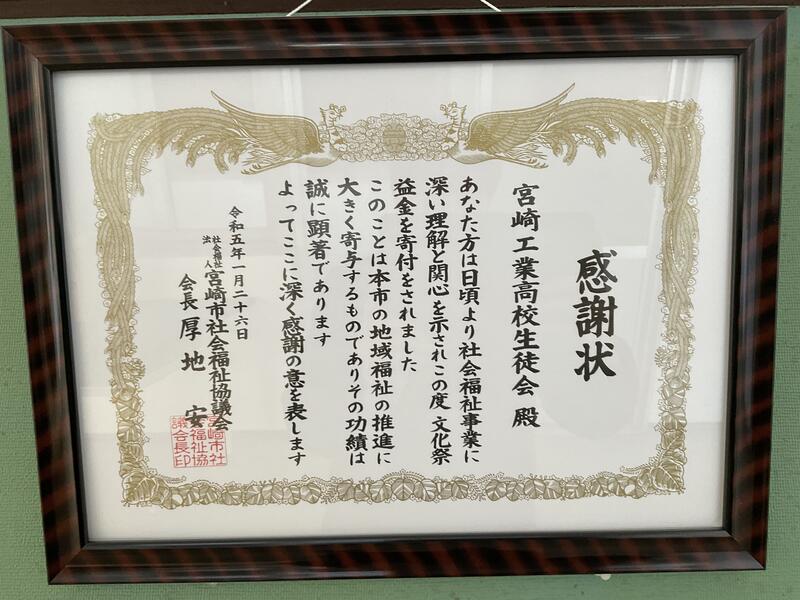 感謝状
宮崎工業高校生徒会 殿
あなた方は日頃より社会福祉事業に
深い理解と関心を示されこの度 文化祭
益金を寄付をされました
このことは本市の地域福祉の推進に
大きく寄与するものでありその功績は
誠に顕著であります
よってここに深く感謝の意を表します
令和五年一月二十六日
社会福祉法人 宮崎市社会福祉協議会
会長 厚地 安
宮崎市社
福祉協
議会長印